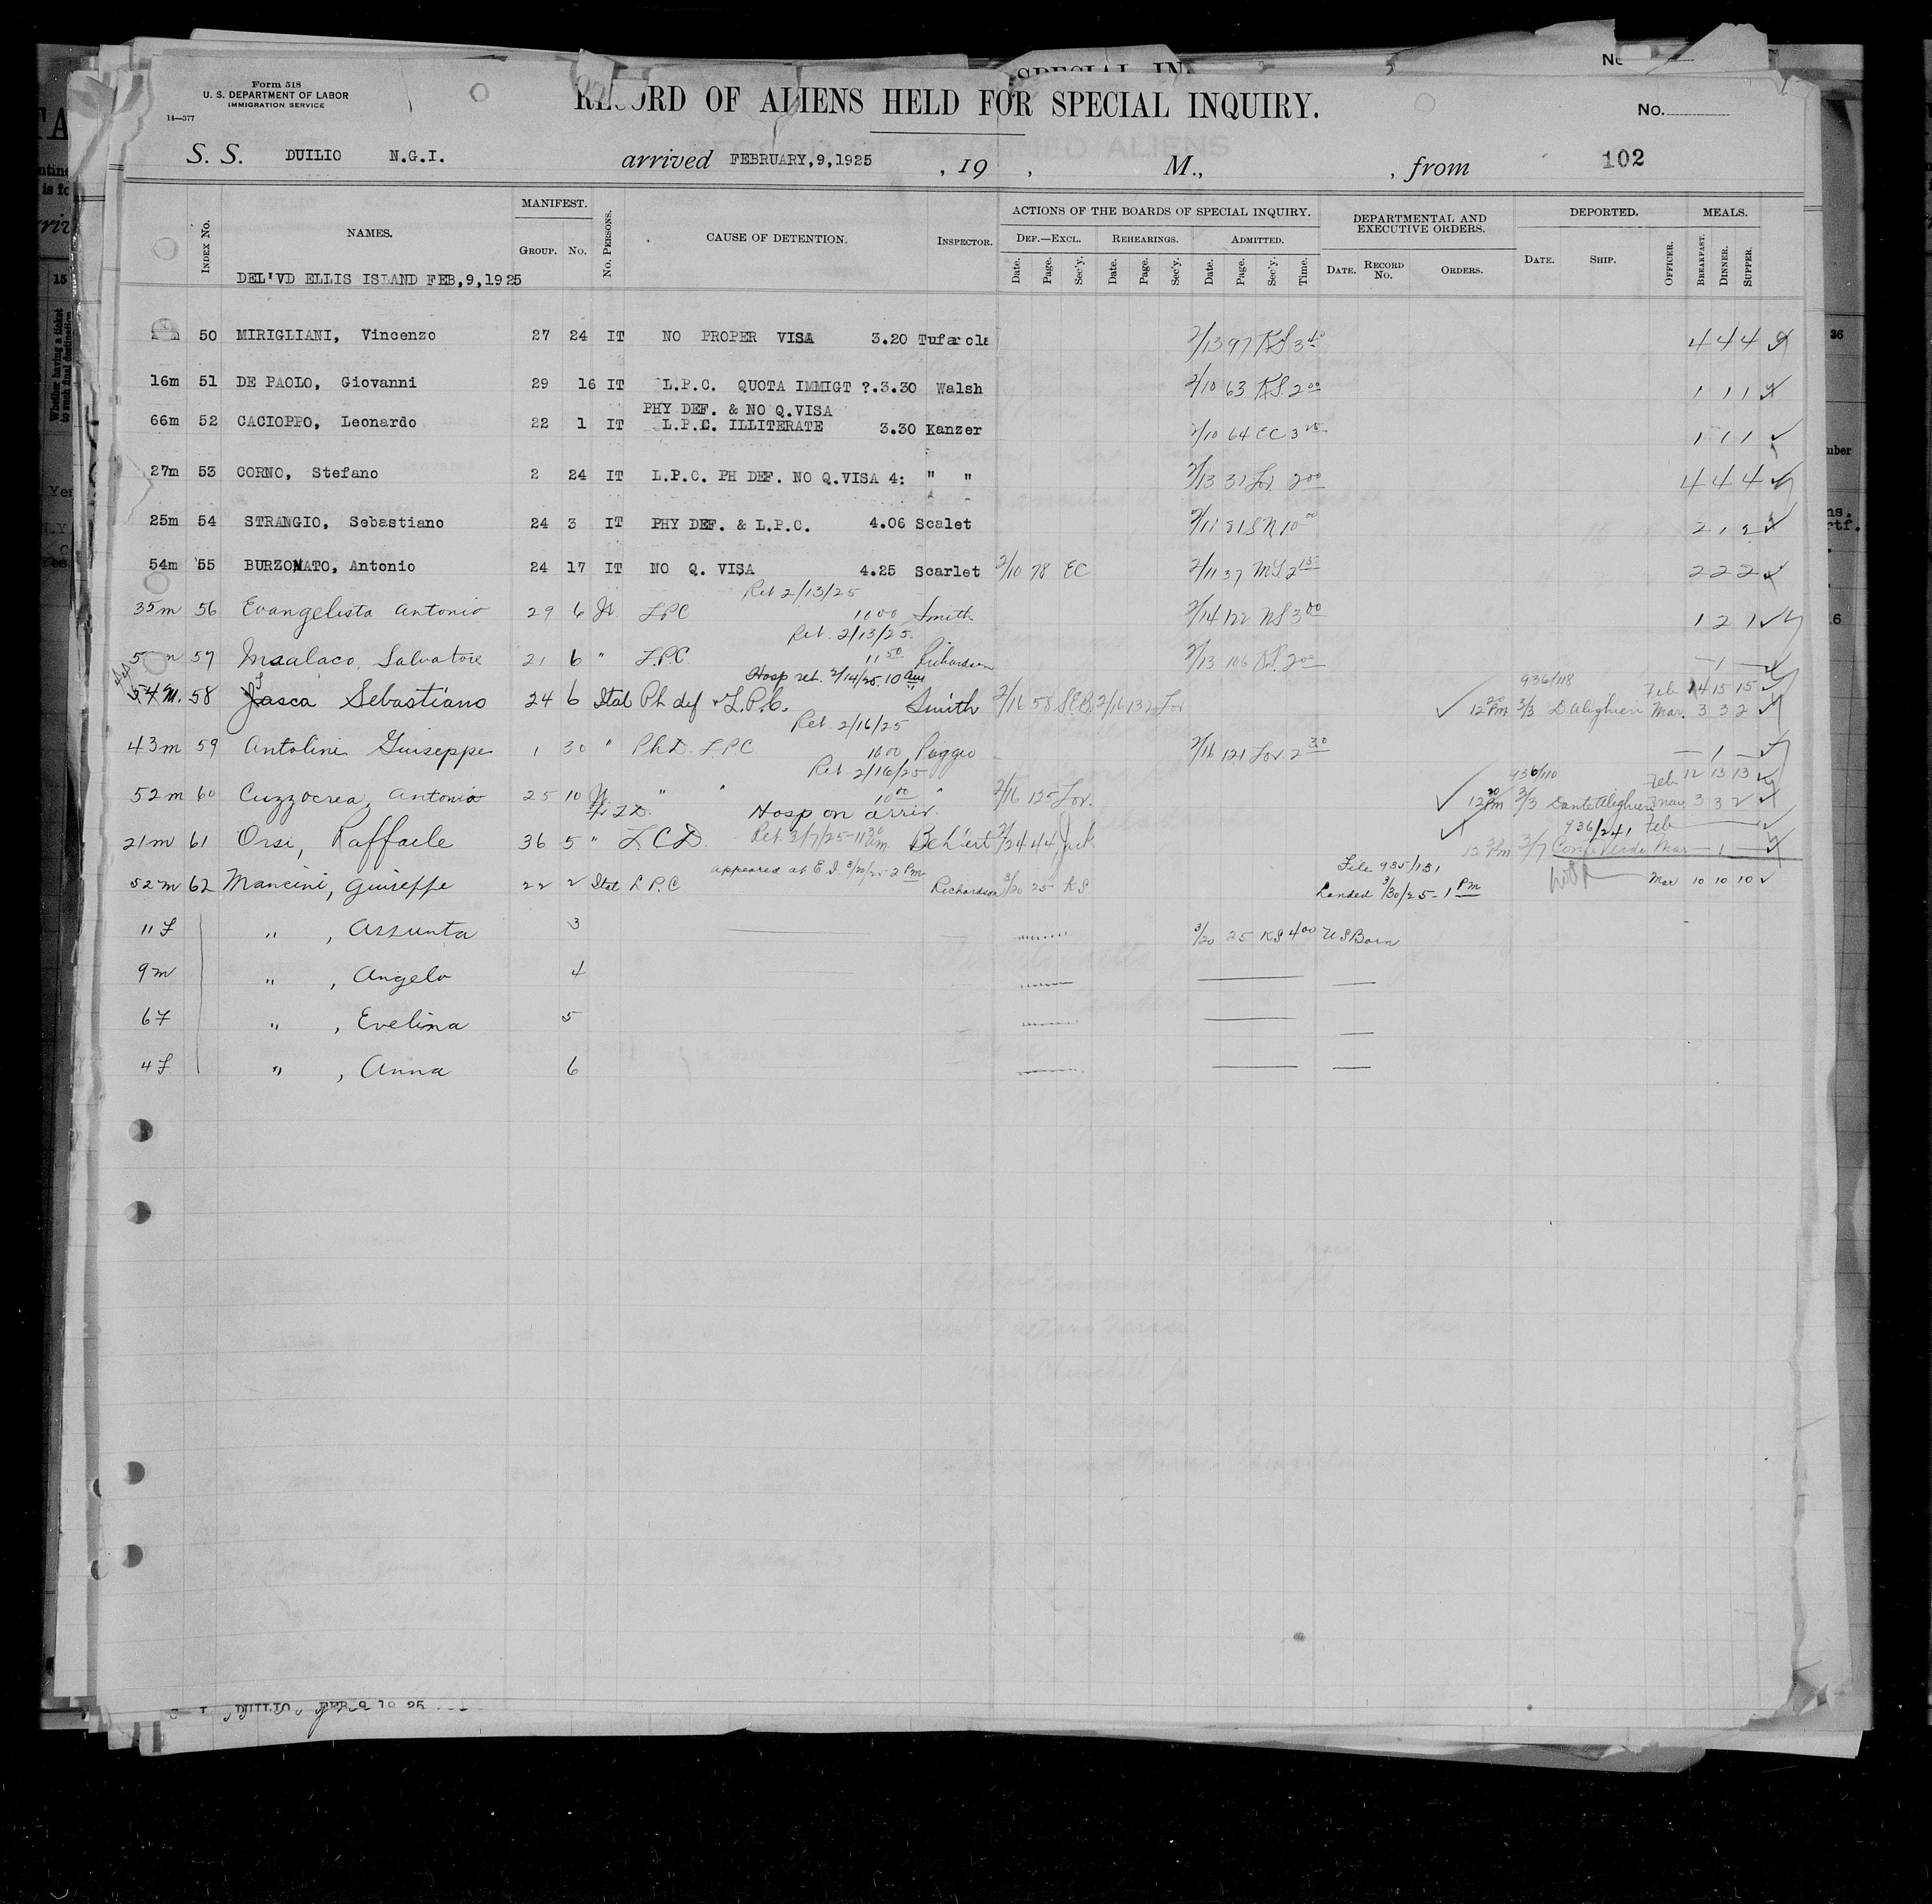 Form 518
U. S. DEPARTMENT OF LABOR
IMMIGRATION SERVICE
14—377
RECORD OF ALIENS HELD FOR SPECIAL INQUIRY.
No.
S. S. DUILIO N.G.I. arrived FEBRUARY,9,1925 , 19 , M., , from 102
Index No. NAMES. MANIFEST. Group. No. No. Persons. CAUSE OF DETENTION. Inspector. ACTIONS OF THE BOARDS OF SPECIAL INQUIRY. DEPARTMENTAL AND EXECUTIVE ORDERS. DEPORTED. MEALS.
Def.—Excl. Rehearings. Admitted.
Date. Page. Sec'y. Date. Page. Sec'y. Date. Page. Sec'y. Time. Date. Record No. Orders. Date. Ship. Officer. Breakfast. Dinner. Supper.
DEL'VD ELLIS ISLAND FEB,9,1925
50 MIRIGLIANI, Vincenzo 27 24 IT NO PROPER VISA 3.20 Tufarola 2/13 97 KS 3 444
16m 51 DE PAOLO, Giovanni 29 16 IT L.P.C. QUOTA IMMIGT ?.3.30 Walsh 2/10 63 KS. 2 00 1 1 1
PHY DEF. & NO Q.VISA
66m 52 CACIOPPO, Leonardo 22 1 IT L.P.C. ILLITERATE 3.30 Kanzer 2/10 64 EC 3 1 1 1
27m 53 CORNO, Stefano 2 24 IT L.P.C. PH DEF. NO Q.VISA 4: " " 2/13 31 Lov 2 00 4 4 4
25m 54 STRANGIO, Sebastiano 24 3 IT PHY DEF. & L.P.C. 4.06 Scalet 2/11 10 00 2 1 2
54m 55 BURZOMATO, Antonio 24 17 IT NO Q. VISA 4.25 Scarlet 2/10 78 EC 2/11 37 2 15 2 2 2
Ret 2/13/25
35m 56 Evangelista Antonio 29 6 It. LPC 11 00 Smith 2/14 122 3 00 1 2 1
Ret. 2/13/25.
57 Salvatore 21 6 " L.P.C 11 50 Richardson 2/13 106 KS. 2 00 — 1 —
Hosp ret. 2/14/25. 10 am
936/118 Feb 14 15 15
54 M. 58 Sebastiano 24 6 Ital Ph def & L.P.C. Smith 2/16 58 2/16 132 Lov 12 20 Pm 3/3 D Alighieri Mar. 3 3 2
Ret. 2/16/25
43m 59 Antolini Guiseppe 1 30 " Ph D. LPC 10 00 Poggio 2/16 121 Lov. 2 30 — 1 —
Ret 2/16/25
936/110 Feb 12 13 13
52m 60 Cuzzocrea, Antonio 25 10 " " 10 00 " 2/16 125 Lov. 12 20 Pm 3/3 Dante Alighieri Mar 3 3 2
Hosp on arriv.
936/241 Feb
21m 61 Orsi, Raffaele 36 5 " L C D. Ret. 3/7/25-11 30 am 2/24 44 Jack 3/7 Conte Verde Mar — 1 —
appeared at E.I. 3/20/25 2 Pm
File 935/131
52m 62 Mancini, Guiseppe 22 2 Ital L P.C Richardson 3/20 25 KS Landed 3/30/25 - 1 Pm Mar 10 10 10
11 f " , Assunta 3 3/20 25 KS 4 00 US Born
9 m " , Angelo 4
6 f " , Evelina 5
4 f " , Anna 6
DUILIO, FEB 9 19 25